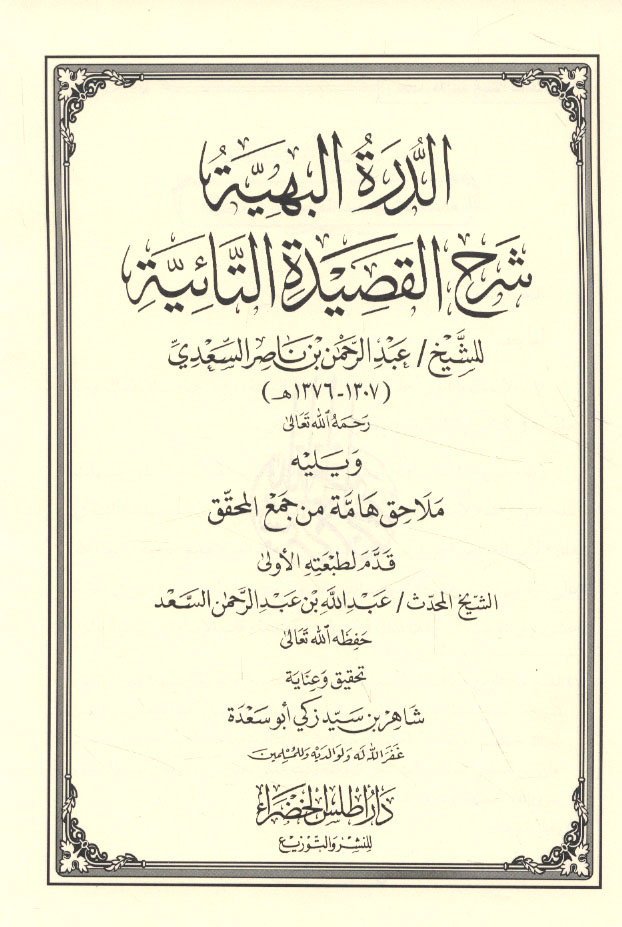 الدُّرَةُ البَهِيَّةُ
شَرَح القَصِيْدَةِ التَّائِيَّةِ
للشَّيْخ / عَبْدِ الرَّحْمٰنِ بْنِ نَاصِر السَّعْدِيِّ
(١٣٠٧-١٣٧٦هـ)
رَحِمَهُ اللهُ تَعَالىٰ
وَيَليْه
مَلَاحِق هَامَّة مِن جَمْع المحقّق
قَدَّمَ لطبْعَتِهِ الأولىٰ
الشّيخ المحدّث / عَبْدِ اللَّه بْن عَبْد الرَّحمٰن السَّعْد
حَفِظَه الله تَعَالىٰ
تحقيق وَعِنَايَة
شَاهِر بْن سَيِّد زَكي أبُو سَعْدَة
غَفَرَ اللهُ لَه وَلوَالديْه وَللمُسْلِمين
دَارُ اطْلس الخَضْرَاء
للنشر وَالتَّوْزِيع